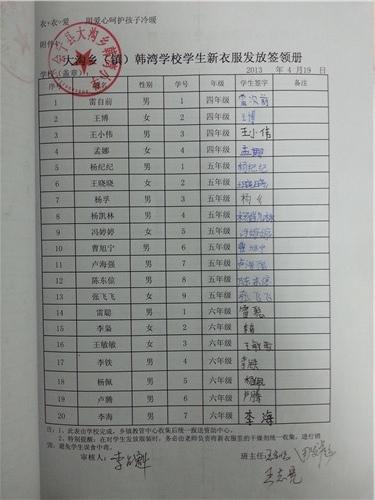 衣·衣·爱 用爱心呵护孩子冷暖
附件4
大沟乡（镇）韩湾学校学生新衣服发放签领册
学校（盖章） 2013 年 4 月19 日
序号 性别 年级 学生签字 备注
1 雷自前 男 1 四年级
2 王博 女 2 四年级 王博
3 王小伟 男 3 四年级 王小伟
4 孟娜 女 4 四年级 孟娜
5 杨纪纪 男 1 五年级 杨纪纪
6 王晓晓 女 2 五年级 王晓晓
7 杨孚 男 3 五年级
8 杨凯林 男 4 五年级 杨凯林
9 冯婷婷 女 5 五年级 冯婷婷
10 曹旭宁 男 6 五年级 曹旭宁
11 卢海强 男 7 五年级 卢海强
12 陈东倍 男 8 五年级 陈东倍
13 张飞飞 女 9 五年级 张飞飞
14 雷聪 男 1 六年级 雷聪
15 李枭 女 2 六年级 李枭
16 王敏敏 女 3 六年级 王敏敏
17 李铁 男 4 六年级 李铁
18 杨佩 男 5 六年级 杨佩
19 卢腾 男 6 六年级 卢腾
20 李海 男 7 六年级 李海
注：1、此表由学校完成，乡镇教管中心收集后统一报送资助中心。
2、特别提醒，在对学生发放服装时，务必由老师负责将新衣服里的干燥剂统一收集，进行销
毁，避免学生误食中毒。
审核人： 班主任：